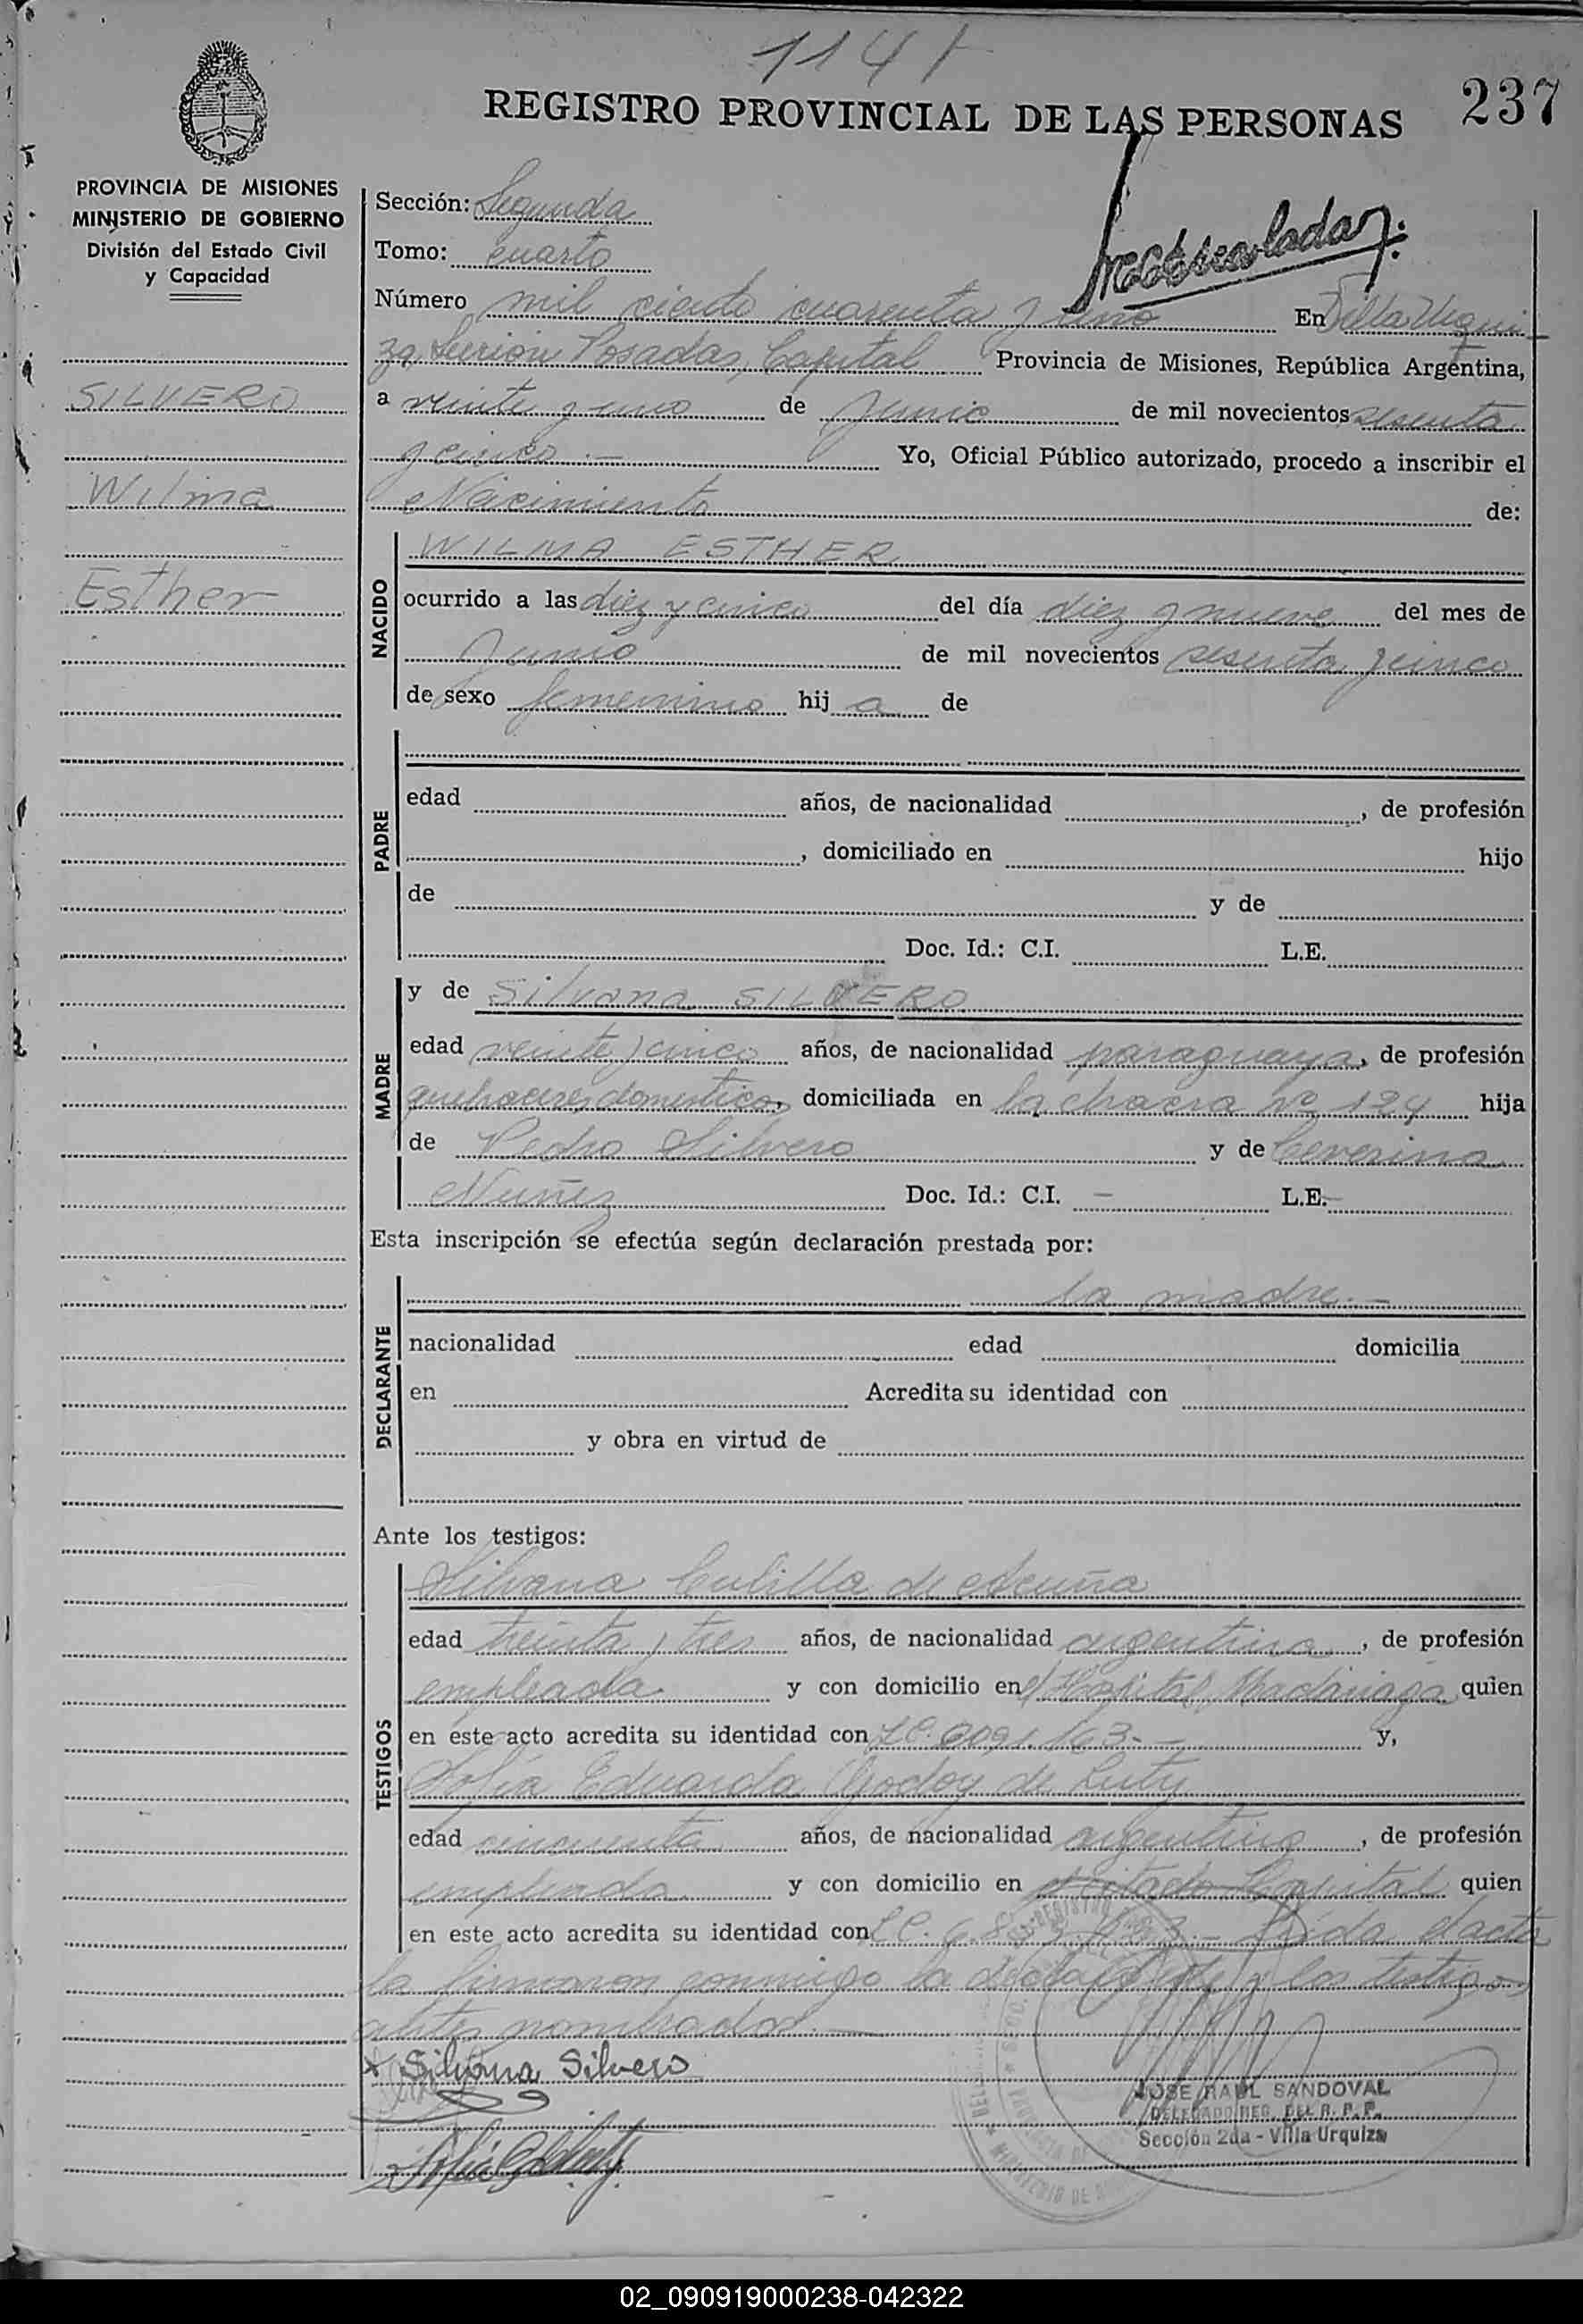 1141
237
REGISTRO PROVINCIAL DE LAS PERSONAS
PROVINCIA DE MISIONES
MINISTERIO DE GOBIERNO
División del Estado Civil
y Capacidad
SILVERO
Wilma
Esther
Sección: Segunda
Tomo: cuarto
Número mil ciento cuarenta y uno En Villa Urqui
za, Posadas, Capital Provincia de Misiones, República Argentina,
a veinte y uno de Junio de mil novecientos sesenta
y cinco.- Yo, Oficial Público autorizado, procedo a inscribir el
Nacimiento de:
NACIDO
WILMA ESTHER
ocurrido a las diez y cinco del día diez y nueve del mes de
Junio de mil novecientos sesenta y cinco
de sexo femenino hij a de
PADRE
edad años, de nacionalidad , de profesión
, domiciliado en hijo
de y de
Doc. Id.: C.I. L.E.
MADRE
y de Silvana SILVERO
edad veinte y cinco años, de nacionalidad paraguaya, de profesión
quehaceres domesticos, domiciliada en la chacra Nº 124 hija
de Pedro Silvero y de Ceverina
Nuñez Doc. Id.: C.I. - L.E. -
Esta inscripción se efectúa según declaración prestada por:
DECLARANTE
la madre.-
nacionalidad edad domicilia
en Acredita su identidad con
y obra en virtud de
Ante los testigos:
TESTIGOS
Silvana de Acuña
edad treinta y tres años, de nacionalidad argentina, de profesión
empleada y con domicilio en el Hospital Madariaga quien
en este acto acredita su identidad con y,
Sofía Eduarda Godoy de
edad cincuenta años, de nacionalidad argentina, de profesión
empleada y con domicilio en citado Hospital quien
en este acto acredita su identidad con L.C. Leída el acta
la firmaron conmigo la declarante y los testigos
antes nombrados.-
x Silvana Silvero
JOSE RAUL SANDOVAL
DELEGADO REG. DEL R. P. P.
Sección 2da - Villa Urquiza
02_090919000238-042322